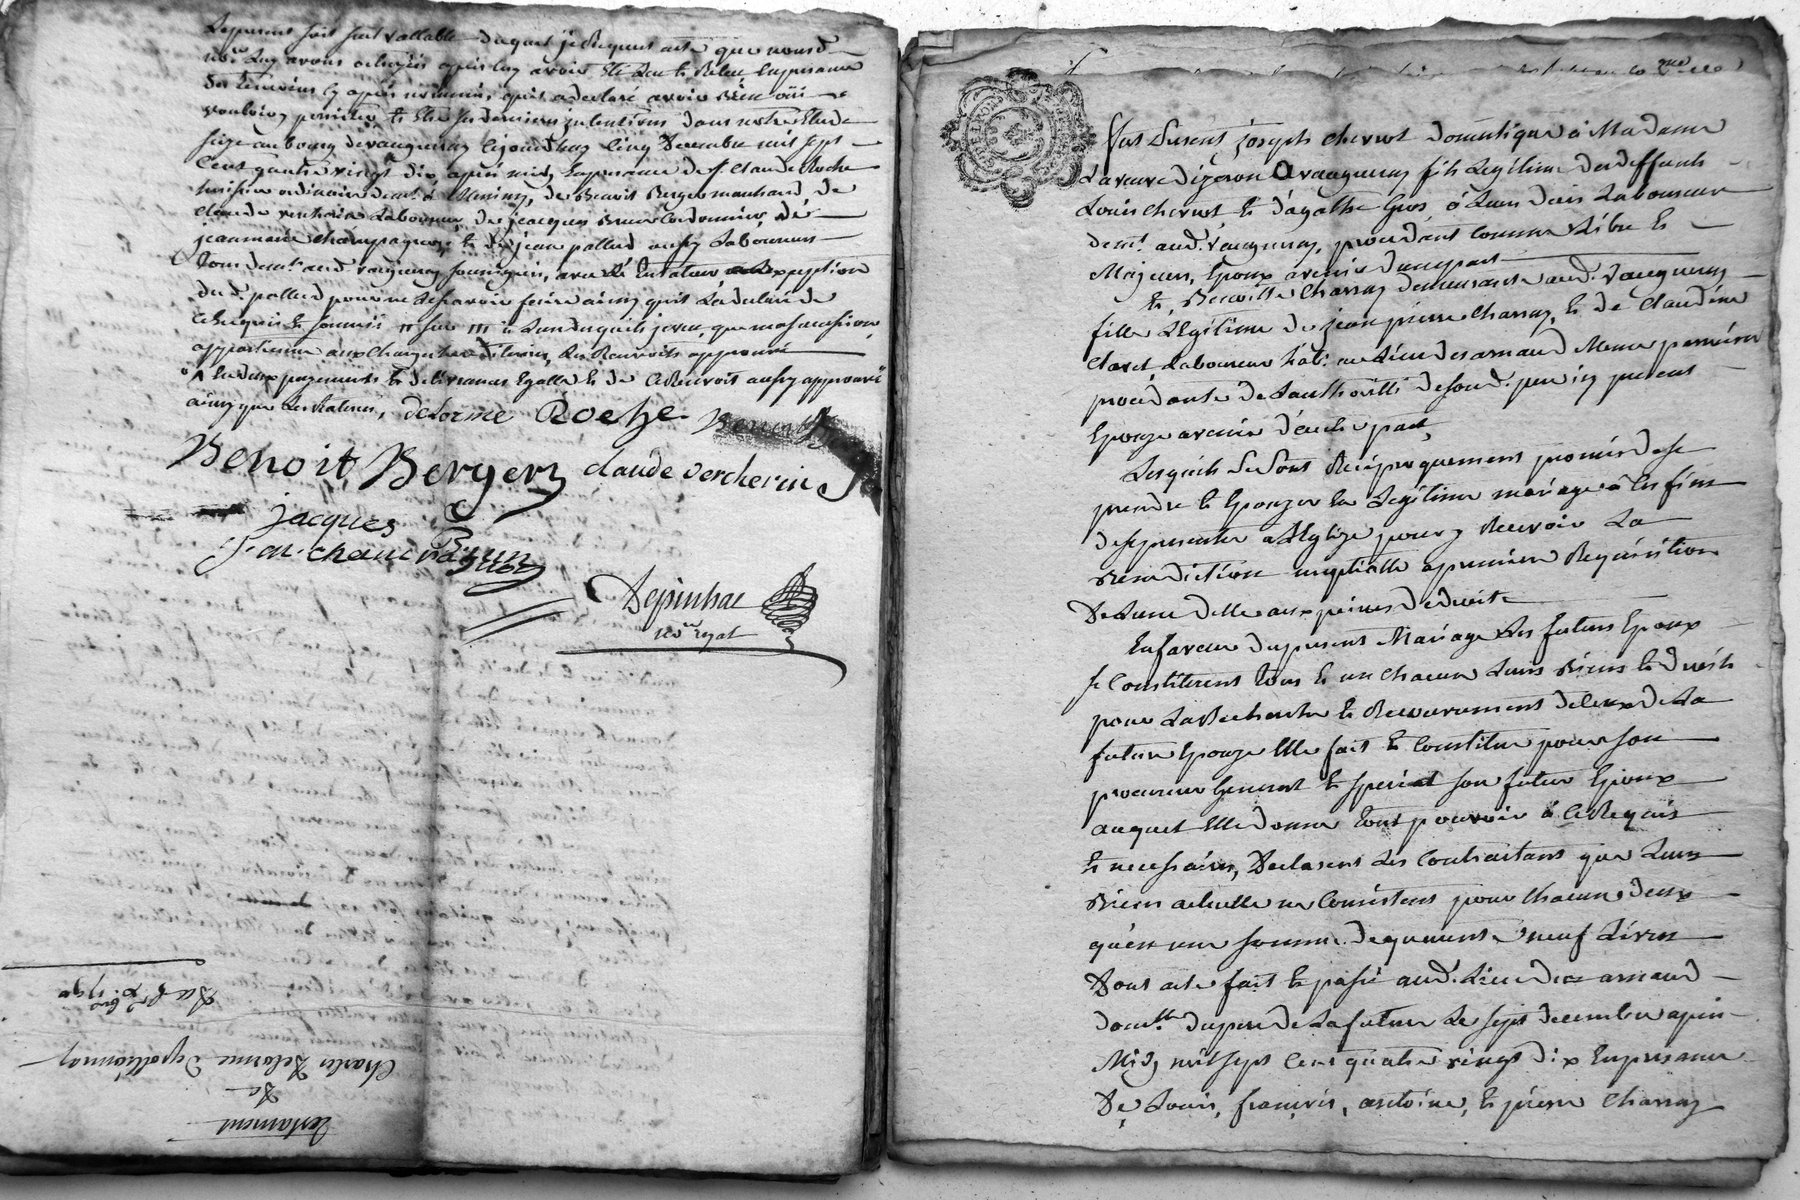 Le présent soit fait vallable duquel je requiers acte que nousd
no.re luy avons octroyé après luy avoir été lu et relu en presence
des temoins cy après nommés, qu'il a declaré avoir bien oüi
vouloir persister et être ses dernieres intentions dans notre Etude
size au bourg de vaugneray le jourdhuy cinq Decembre mil sept
Cent quatre vingt dix après midy en presence de s.r Claude Roche
huissier ordinaire dem.t à de Benoit Berger marchand de
Claude vercherin Laboureur, de jacques Brun Cordonnier de
jeanmarie Champagnon, et de jean pallud aussy Laboureurs
tous dem.ts aud. vaugneray soussignés, avec le testateur exception
du d. pallud pour ne le sçavoir faire ainsy qu'il l'a declaré de
ce requis et sommé
appartienne aux charges les Renvoits approuvé
en deux payements et delivrances Egalle et de ce Renvoit aussy approuvé
ainsy que les ratures, delorme Roche
Benoit Berger claude vercherin
jacques Brun
J. m. champagnon
Depinhac
no.re royal
Testament
De
Charles Delorme Depollionnay
Du 5 x.bre 1790
Furent presents joseph chervet domestique à Madame
La veuve dizeron à vaugneray fils Legitime des deffunts
Louis chervet et d'agathe Gros à Luis Laboureur
dem.t aud. vaugneray, procedant comme Libre et
Majeur, Epoux avenir d'une part
Et, Benoitte Charray demeurante aud. vaugneray
fille Légitime de jean pierre Charray, et de Claudine
Clavet, Laboureur hab.t au Lieu des arnaud Meme paroisse
procedante de Lauthorité de sond. pere icy present
Epouze avenir d'autre part,
Lesquels se sont Réciproquement promis de se
prendre et Epouzer en Legitime mariage à les fins
de se presenter a L'Eglize pour y Recevoir La
Benediction nuptialle a premiere Requisition
De L'une delle aux peines de droit
En faveur du present Mariage Les futurs Epoux
se Constituent tous et un chacun Leurs Biens et droits
pour La Recherche et Recouvrement de Ceux de La
future Epouze Elle fait et Constitue pour son
procureur General et special son futur Epoux
auquel Elle donne tout pouvoir à ce Requis
et necessaire, Declarent Les Contractans que Leurs
Biens actuelle ne Consistent pour Chacun deux
qu'en une somme de quarante neuf Livres
Dont acte fait et passé aud. Lieu des arnaud
dom.lle du pere de La future Le sept decembre après
Midy mil sept Cent quatre vingt dix En presence
De Louis, françois, antoine, et pierre Charray